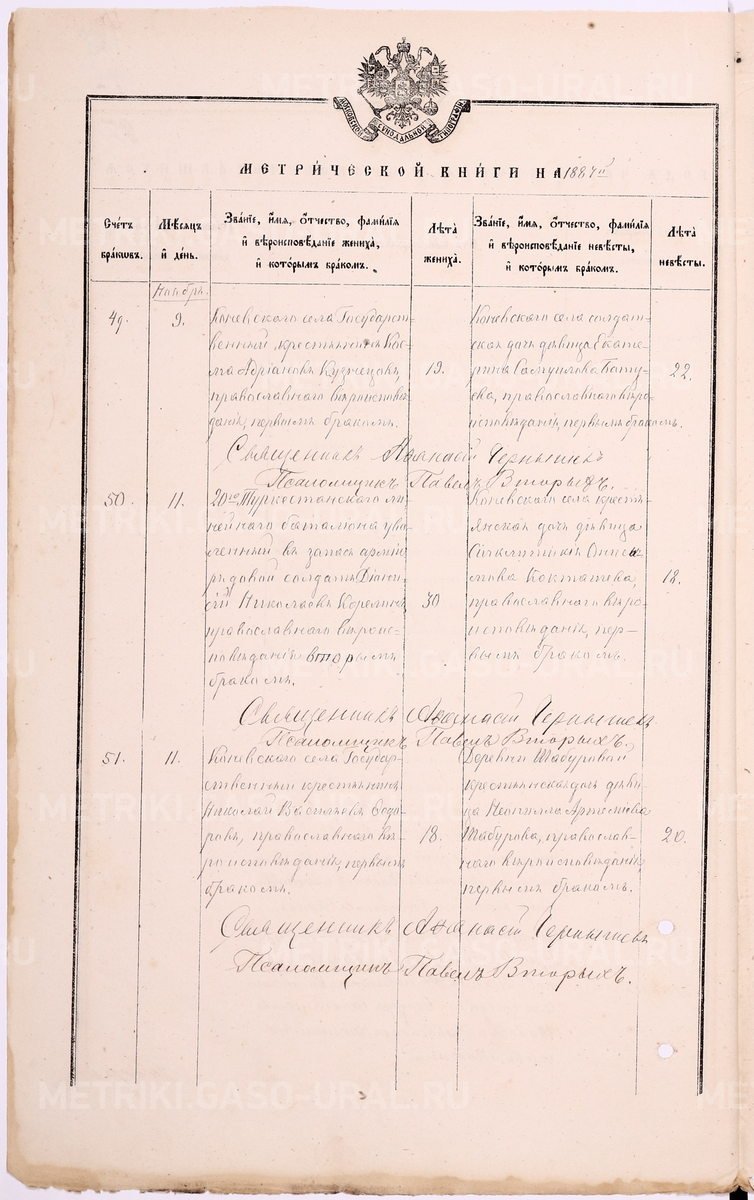 МОСКОВСКОЙ СѴНОДАЛЬНОЙ ТИПОГРАФІИ
МЕТРИ́ЧЕСКОЙ КНИ́ГИ НА 1887 й
Сче́тъ бра́ковъ.
Мѣ́сяцъ и́ де́нь.
Зва́нїе, и́мя, ѻ҆́тчество, фами́лїя и҆ вѣроисповѣ́данїе жениха́, и҆ кото́рымъ бра́комъ.
Лѣ́та жениха́.
Зва́нїе, и́мя, ѻ҆́тчество, фами́лїя и҆ вѣроисповѣ́данїе невѣ́сты, и҆ кото́рымъ бра́комъ.
Лѣ́та невѣ́сты.
Ноябрь.
49.
9.
Коневскаго села Государст-
венный крестьянинъ Кос-
ма Адріановъ Кузнецовъ,
православнаго вѣроисповѣ-
данія, первымъ бракомъ.
19.
Коневскаго села солдат-
ская дочь дѣвица Екате-
рина Самуилова
православнаго вѣро-
исповѣданія, первымъ бракомъ.
22.
Священникъ Аѳанасій Чернышевъ
Псаломщикъ Павелъ Вторыхъ.
50.
11.
20го Туркестанскаго ли-
нейнаго баталіона уво-
ленный въ запасъ арміи
рядовой солдатъ Діони-
сій Николаевъ Корелинъ
православнаго вѣроис-
повѣданія вторымъ
бракомъ.
30
Коневскаго села кресть-
янская дочь дѣвица
православнаго вѣро-
исповѣданія, пер-
вымъ бракомъ.
18.
Священникъ Аѳанасій Чернышевъ
Псаломщикъ Павелъ Вторыхъ.
51.
11.
Коневскаго села Государ-
ственный крестьянинъ
Николай Васильевъ Сидо-
ровъ, православнаго вѣ-
роисповѣданія, первымъ
бракомъ.
18.
Деревни Шабуровой
крестьянская дочь дѣви-
ца Неонилла Артемьева
Шабурова, православ-
наго вѣроисповѣданія,
первымъ бракомъ.
20.
Священникъ Аѳанасій Чернышевъ
Псаломщикъ Павелъ Вторыхъ.
METRIKI.GASO-URAL.RU